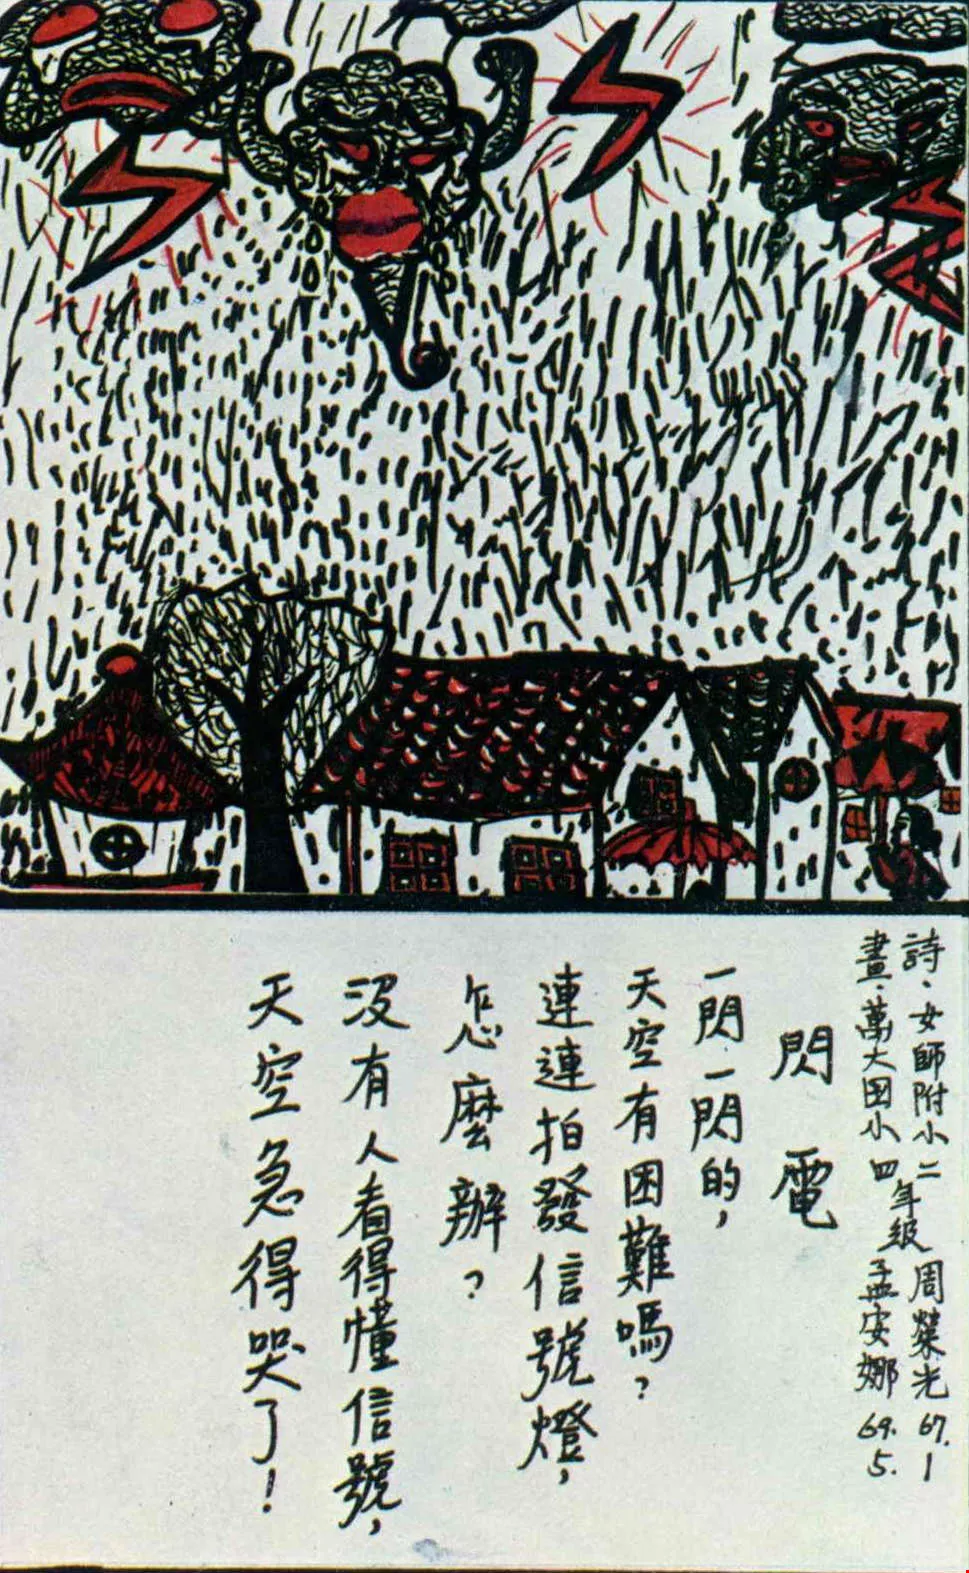 詩・女師附小二年級 周榮光 67.1
畫・萬大国小四年級 孟安娜 69.5.
閃電
一閃一閃的，
天空有困難嗎？
連連拍發信號燈，
怎麼辦？
沒有人看得懂信號，
天空急得哭了！